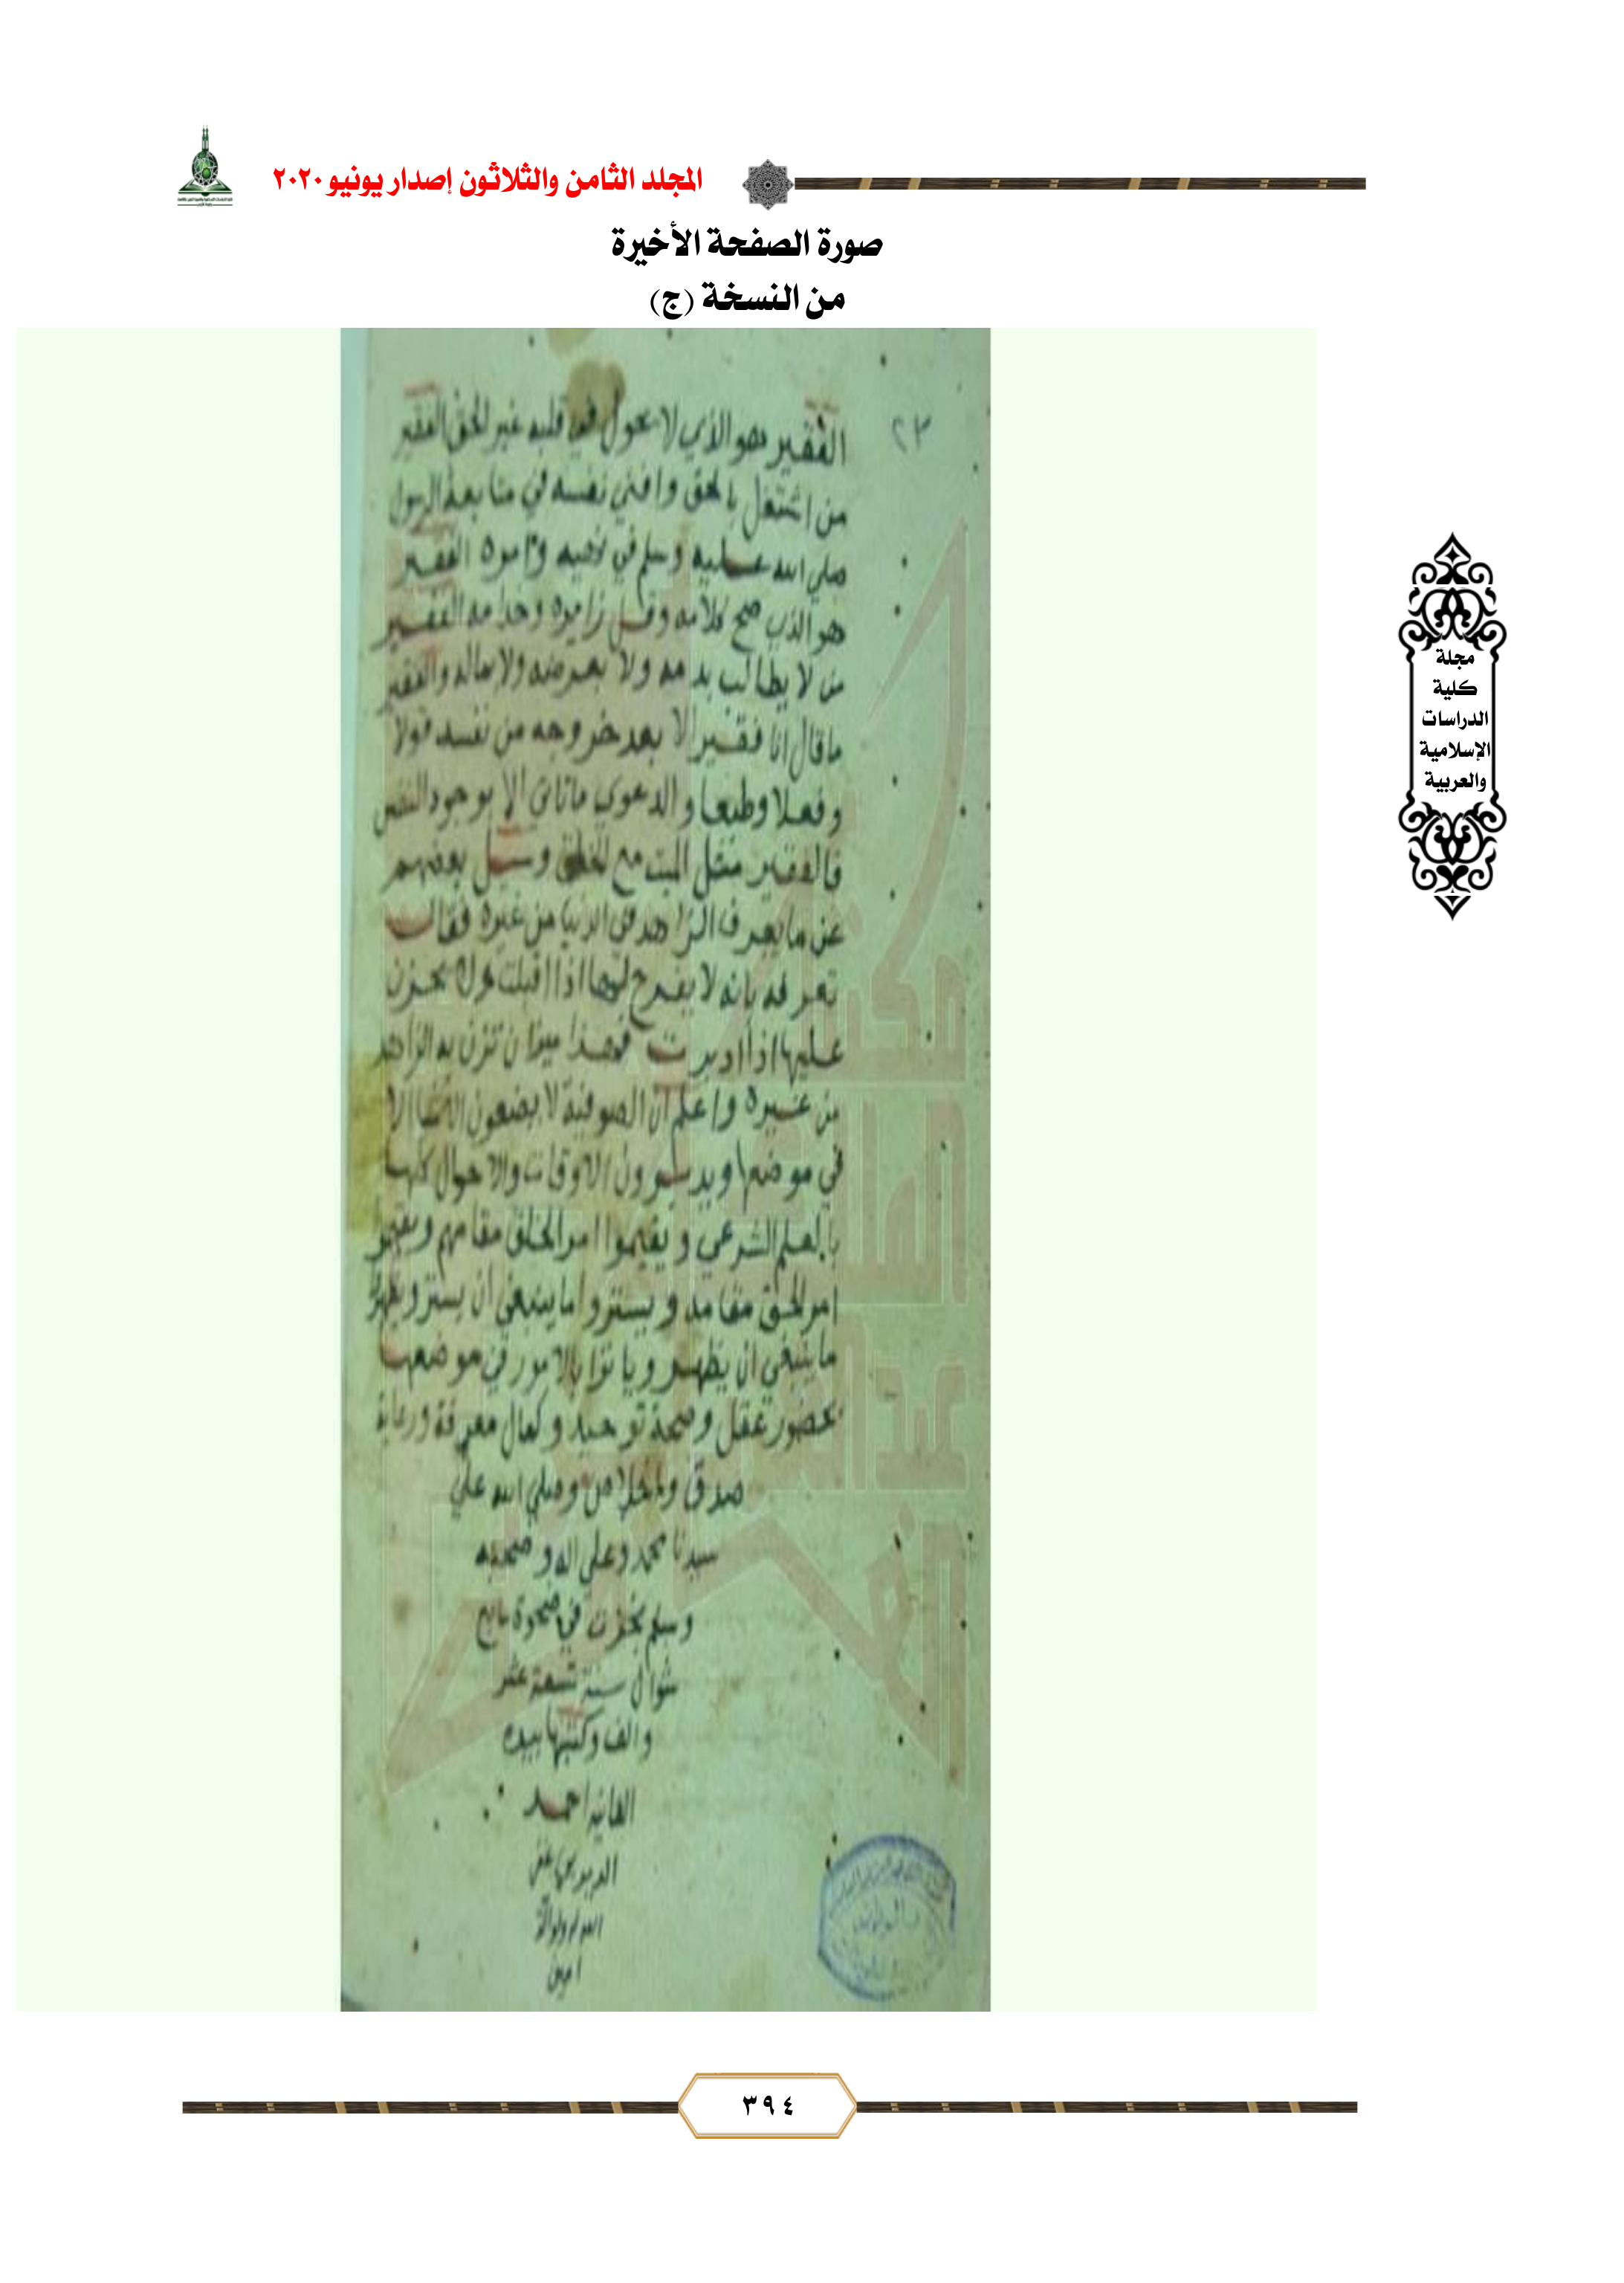 المجلد الثامن والثلاثون إصدار يونيو ٢٠٢٠
صورة الصفحة الأخيرة
من النسخة (ج)
٢٣
الفقير هو الذي لا يحول في قلبه غير الحق الفقير
من اشتغل بالحق وافني نفسه في متابعة الرسول
صلي الله عليه وسلم في نهيه وامره الفقير
هو الذي صح كلامه وقل زامره وخدامه الفقير
من لا يطالب بدمه ولا بعرضه ولا بماله والفقير
ما قال انا فقير الا بعد خروجه من نفسه قولا
وفعلا وطبعا والدعوي ماتاتي الا بوجود النفس
فالفقير مثل الميت مع الخلق وسيل بعضهم
عن ما يعرف الزاهد في الدنيا من غيره فقال
تعرفه بانه لا يفرح بها اذا اقبلت ولا يحزن
عليها اذا ادبرت فهذا ميزان تزن به الزاهد
من غيره واعلم ان الصوفية لا يضعون الاشيا الا
في موضعها ويدبرون الاوقات والاحوال كلها
بالعلم الشرعي ويقيموا امر الخلق مقامهم ويقيموا
امر الحق مقامه ويستروا ما ينبغي ان يستر ويظهروا
ما ينبغي ان يظهر وياتوا بالامور في موضعها
بحضور عقل وصحة توحيد وكمال معرفة ورعاية
صدق واخلاص وصلي الله علي
سيدنا محمد وعلي اله وصحبه
وسلم نجزت في ضحوة سابع
شوال سنة تسعة عشر
والف وكتبها بيده
الفانيه احمد
غفر
الله له ولوالديه
امين
مجلة
كلية
الدراسات
الإسلامية
والعربية
٣٩٤